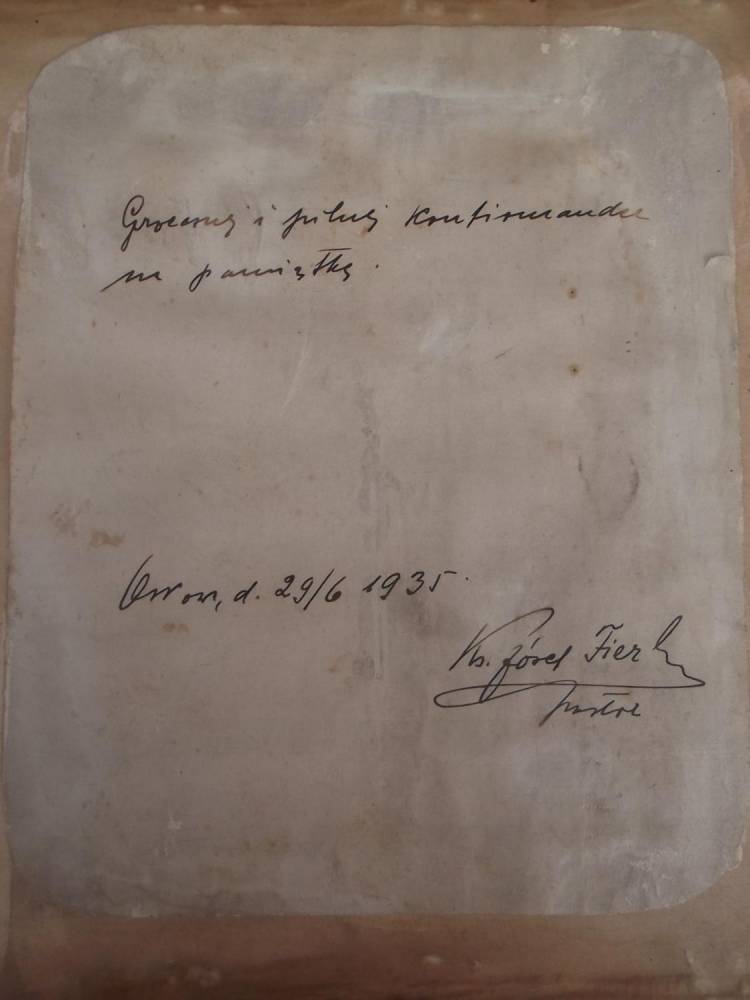 Grzecznej i pilnej konfirmandce
na pamiątkę.
d. 29/6 1935.
Ks. Józef Fierla
pastor